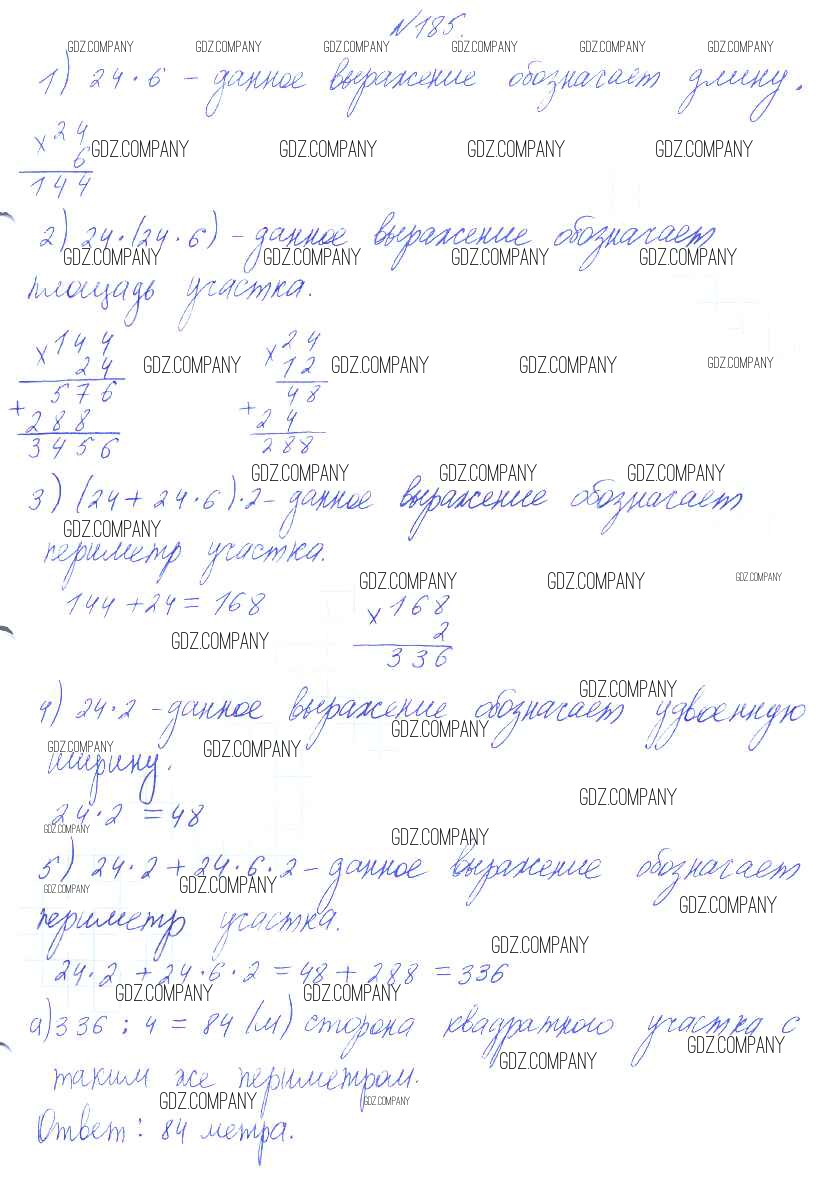 №185.
GDZ.COMPANY GDZ.COMPANY GDZ.COMPANY GDZ.COMPANY GDZ.COMPANY GDZ.COMPANY
1) 24·6 – данное выражение обозначает длину.
×24
6
GDZ.COMPANY GDZ.COMPANY GDZ.COMPANY GDZ.COMPANY
144
2) 24·(24·6) – данное выражение обозначает
GDZ.COMPANY GDZ.COMPANY GDZ.COMPANY GDZ.COMPANY
площадь участка.
×144 ×24
24 GDZ.COMPANY 12 GDZ.COMPANY GDZ.COMPANY GDZ.COMPANY
576 48
+288 +24
3456 288
GDZ.COMPANY GDZ.COMPANY GDZ.COMPANY
3) (24+24·6)·2 – данное выражение обозначает
GDZ.COMPANY
периметр участка.
GDZ.COMPANY GDZ.COMPANY GDZ.COMPANY
144+24=168 ×168
GDZ.COMPANY 2
336
GDZ.COMPANY
4) 24·2 – данное выражение обозначает удвоенную
GDZ.COMPANY
GDZ.COMPANY GDZ.COMPANY
ширину.
GDZ.COMPANY
24·2 =48
GDZ.COMPANY GDZ.COMPANY
5) 24·2+24·6·2 – данное выражение обозначает
GDZ.COMPANY GDZ.COMPANY GDZ.COMPANY
периметр участка.
GDZ.COMPANY
24·2 +24·6·2 =48+288 =336
GDZ.COMPANY GDZ.COMPANY
а) 336:4=84 (м) сторона квадратного участка с
GDZ.COMPANY GDZ.COMPANY
таким же периметром.
GDZ.COMPANY GDZ.COMPANY
Ответ: 84 метра.